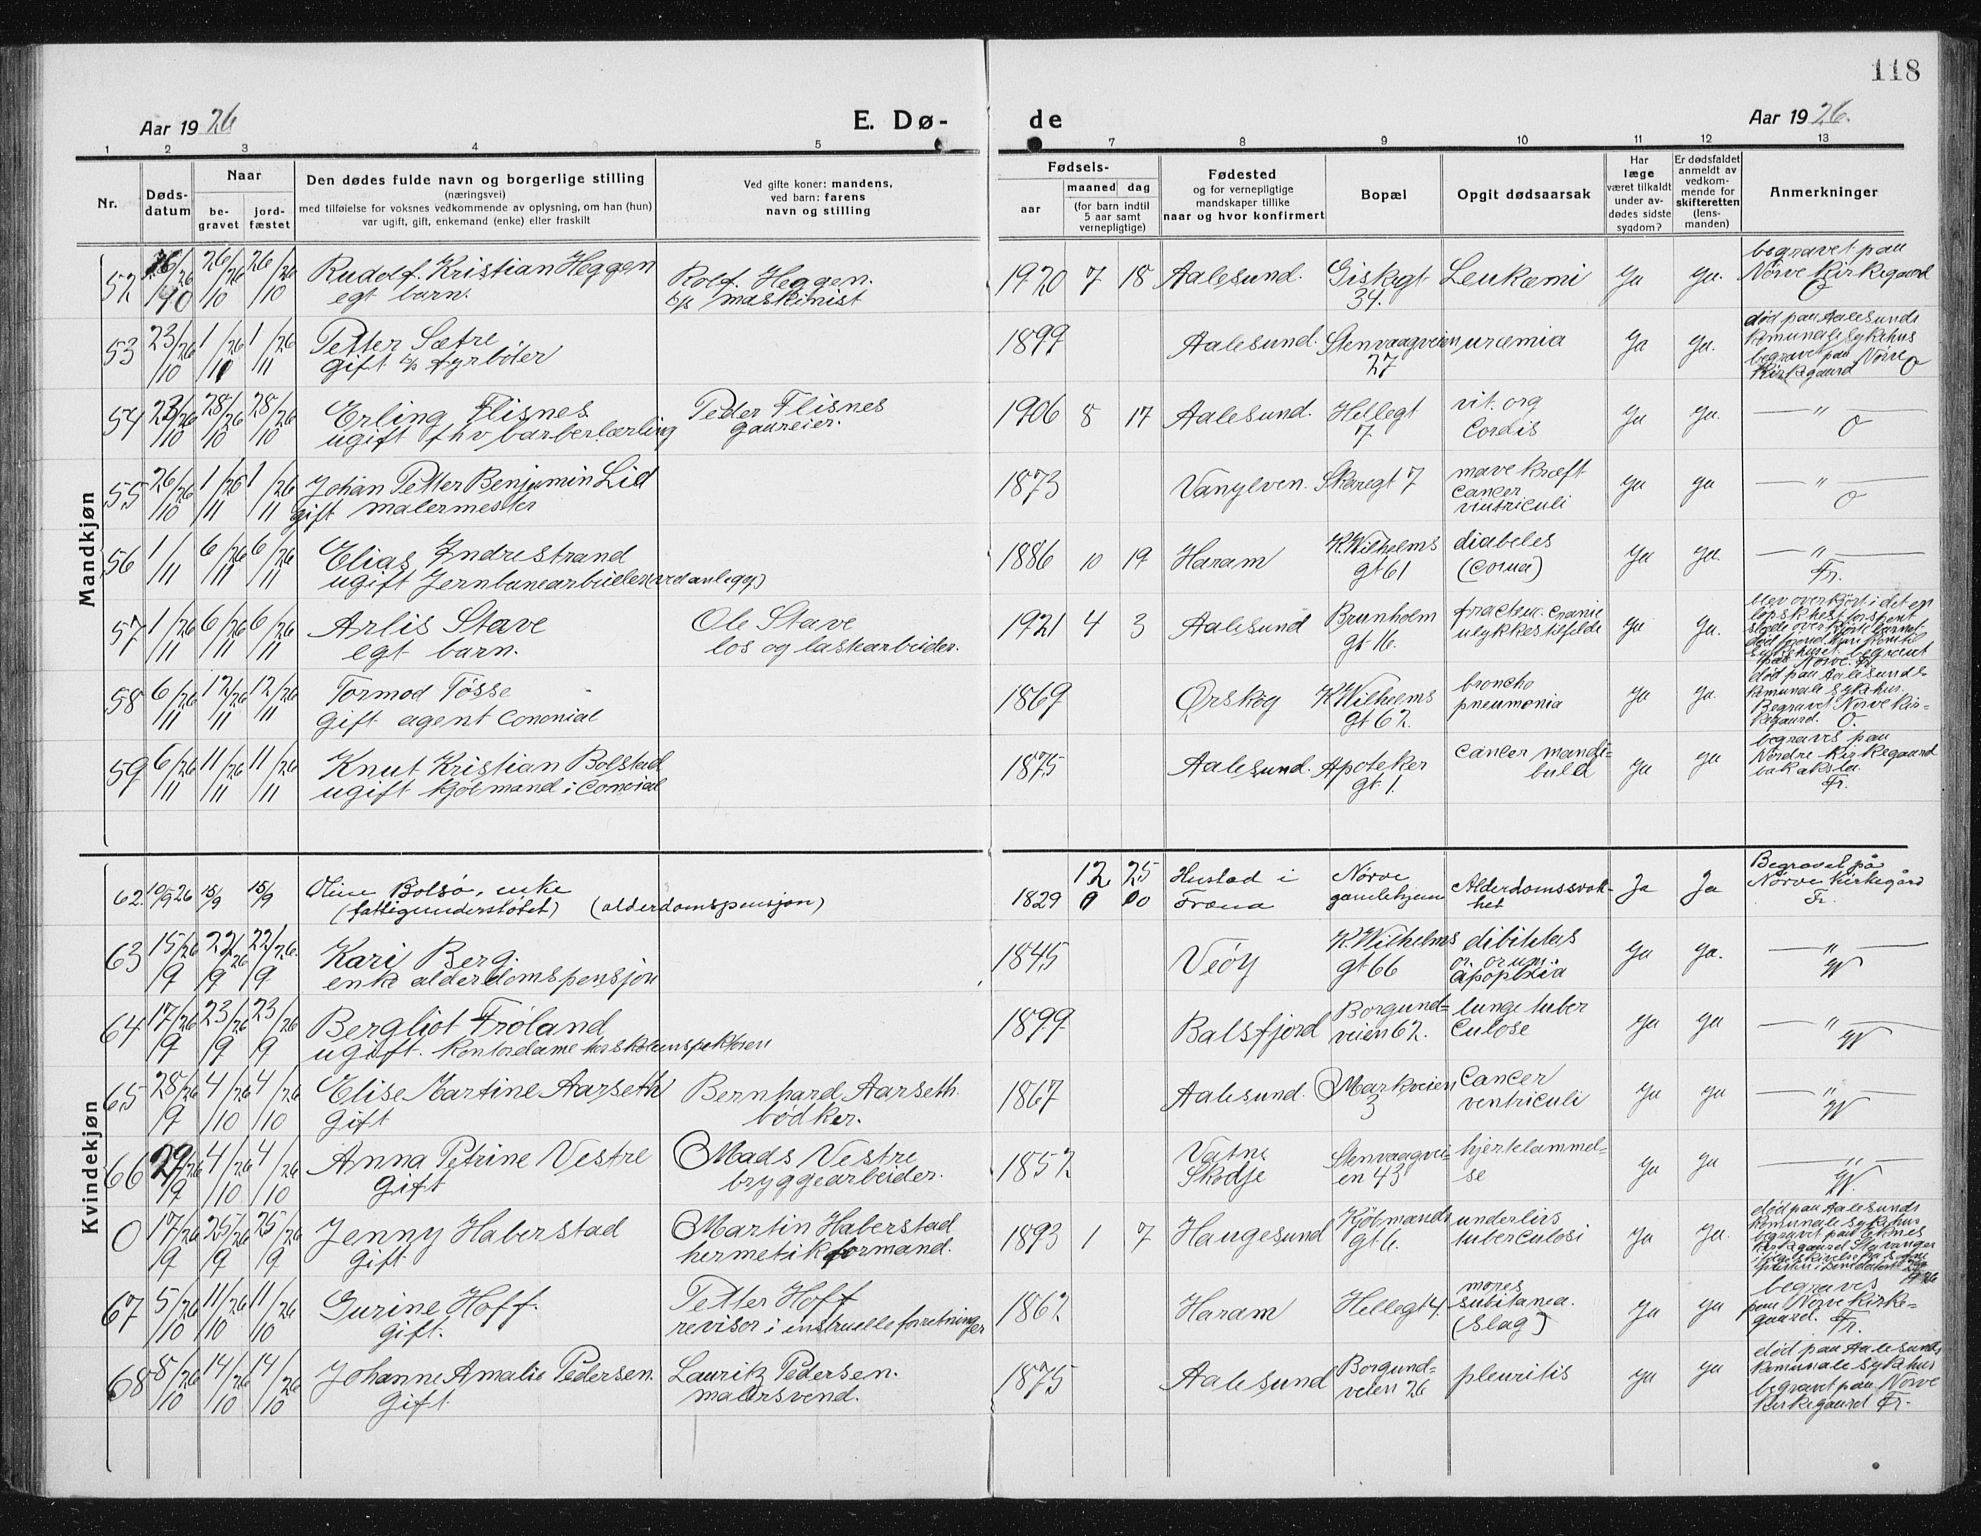 118
Aar 1926
E. Dø-
de
Aar 1926.
1 2 3 4 5 7 8 9 10 11 12 13
Nr.
Døds-
datum
Naar
be-
gravet
jord-
fæstet
Den dødes fulde navn og borgerlige stilling
(næringsvei)
med tilføielse for voksnes vedkommende av oplysning, om han (hun)
var ugift, gift, enkemand (enke) eller fraskilt
Ved gifte koner: mandens,
ved barn: farens
navn og stilling
Fødsels-
aar
maaned dag
(for barn indtil
5 aar samt
vernepligtige)
Fødested
og for vernepligtige
mandskaper tillike
naar og hvor konfirmert
Bopæl
Opgit dødsaarsak
Har
læge
været tilkaldt
under av-
dødes sidste
sygdom?
Er dødsfaldet
anmeldt av
vedkom-
mende for
skifteretten
(lens-
manden)
Anmerkninger
Mandkjøn
52 26/10 26 26/10 26 Rudolf Kristian Heggen Rolf Heggen. 1920 7 18 Aalesund. Giskegt 34. Leukæmi Ja Ja. begravet paa
egt barn. maskinist Nørve Kirkegaard
O
53 23/10 26 1/11 26 1/11 26 Petter Sætre 1899 Aalesund. Stenvaagveien 27 uræmia Ja Ja. død paa Aalesunds
gift fyrbøter komunale sykehus
begravet paa Nørve
Kirkegaard O
54 23/10 26 28/10 26 28/10 26 Erling Flisnes Peder Flisnes 1906 8 17 Aalesund. Hellegt 7 vit. org Cordis Ja Ja. — " —
ugift fhv barberlærling gaareier. O
55 26/10 26 1/11 26 1/11 26 Johan Petter Benjamin Lid 1873 Vanylven. Skaregt 7 mave kræft Cancer Ja Ja — " —
gift malermester O
56 1/11 6/11 26 6/11 26 Elias Indrestrand 1886 10 19 Haram K. Wilhelms gt 61 diabetes (Coma) Ja Ja. — " —
ugift Jernbanearbeider (ved anlegg) Fr.
57 1/11 26 6/11 26 6/11 26 Arlis Stave Ole Stave 1921 4 3 Aalesund Brunholm gt 16. ulykkestilfelde Ja Ja. blev overkjørt i det en
egt barn. los og lastarbeider.
begravet
paa Nørve. Fr.
58 6/11 26 12/11 26 12/11 26 Tormod Tøsse 1869 Ørskog K Wilhelms gt 62. broncho pneumonia Ja Ja. død paa Aalesunds
gift agent komunale sykehus.
Begravet Nørve kir-
kegaard. O.
59 6/11 26 11/11 26 11/11 26 Knut Kristian Bolstad 1875 Aalesund. Apoteker gt 1. Cancer mandi- Ja Ja begraves paa
ugift kjøbmand i Nordre Kirkegaard
bak aksla.
Fr.
Kvindekjøn
62. 10/9 26 15/9 15/9 Oline Bolsø, enke 1829 12 25 Hustad i Fræna Nørve gamlehjem Alderdomssvak- het Ja Ja Begravet på
(fattigunderstøtet) (alderdomspensjon) Nørve Kirkegård
Fr.
63 15/9 26 22/9 26 22/9 26. Kari Berg. 1845 Veøy K. Wilhelms gt 66 Ja Ja. — " —
enke alderdomspensjon W
64 17/9 26 23/9 26 23/9 26 Bergliot Frøland 1899 Balsfjord Borgund- veien 62. lunge tuber culose Ja Ja — " —
ugift. kontordame hos skoleinspektøren W
65 28/9 26 4/10 26 4/10 26 Elise Martine Aarseth Bernhard Aarseth. 1867 Aalesund. Markveien 3 Cancer ventriculi Ja Ja — " —
gift bødker. W
66 29/9 26 4/10 26 4/10 26 Anna Petrine Vestre Mads Vestre 1852 Vatne Skodje Stenvaagvei- en 43 hjertelammel- se Ja Ja — " —
Gift bryggearbeider. W.
0 17/9 26 25/9 26 25/9 26 Jenny Haberstad Martin Haberstad 1893 1 7 Haugesund Kjøbmands gt 6. underlivs tuberculosi Ja Ja. død paa Aalesunds
gift hermetikformand. komunale sykehus
begravet paa Eknes
kirkegaard Stavanger
67 5/10 26 11/10 26 11/10 26 Gurine Hoff. Petter Hoff 1862 Haram Hellegt 4. (slag) Ja Ja begraves
gift. revisor i paa Nørve Kirke-
gaard. Fr.
68 8/10 26 14/10 26 14/10 26 Johanne Amalie Pedersen. Lauritz Pedersen. 1875 Aalesund Borgund- veien 26 pleuritis Ja Ja død paa Aalesunds
Gift. malersvend. komunale sykehus
begravet paa Nørve
Kirkegaard Fr.